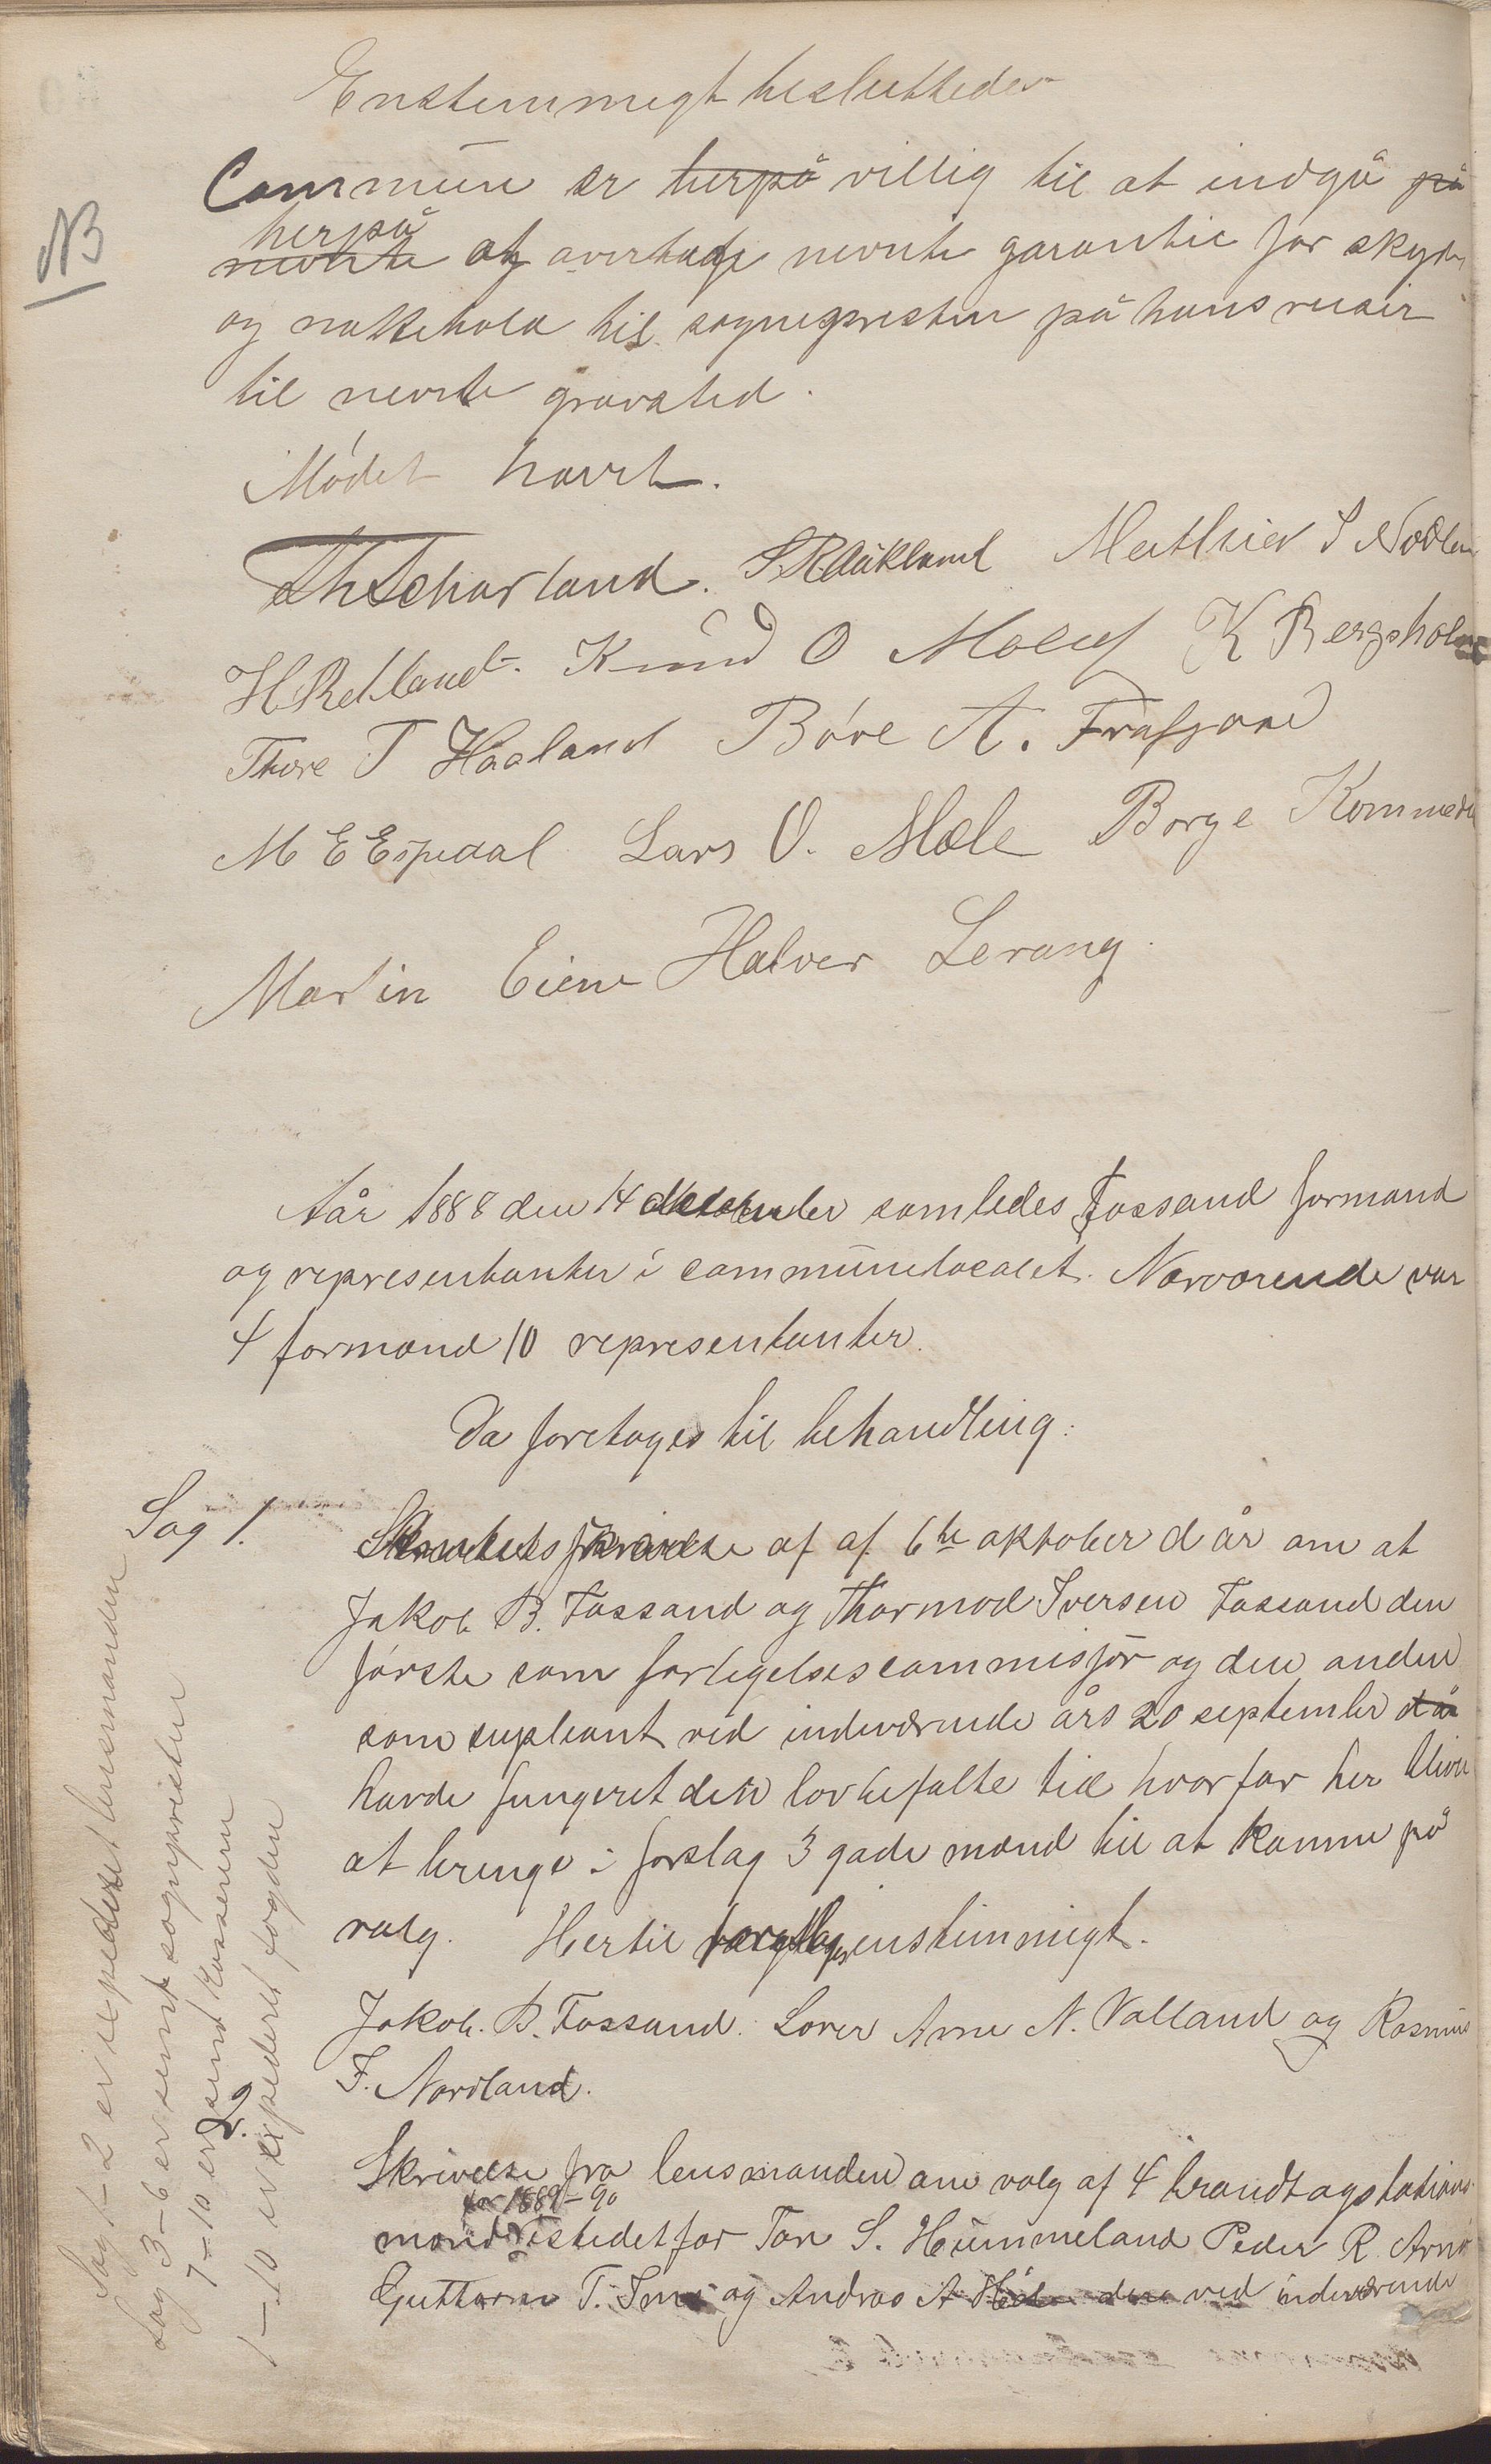 Enstemmigt besluttedes
Commune er herpå villig til at indgå på
NB
herpå
nevnte at overtage nevnte garantie for skyds
og nattehold til sognepresten på hans reiser
til nevnte gravsted.
Mødet hævet.
Th Scharland. S. R. Aukland Mathies S Nodland
H Retland. Knud O Moluf K Bergeholm
Thore T Haaland Børe A. Frafjord
M E Espedal Lars O. Mæle Børge Kommedal
Martin Eiene Halver Lerang.
År 1888 den 14 samledes Fossand formænd
og representanter i communelocalet. Nærværende var
4 formænd 10 representanter.
Da foretoges til behandling:
Sag 1.
af af 6te oktober d år om at
Jakob B. Fossand og Thormod Iversen Fossand den
første som forligelsescommisjør og den anden
som supleant ved indeværende års 20 september då
havde fungeret den lovbefalte tid hvorfor her bliver
at bringe i forslag 3 gode mænd til at komme på
valg. Hertil enstimmigt.
Jakob. B. Fossand. Lærer Arne N. Valland og Rasmus
F. Nordland.
2.
Skrivelse fra lensmanden om valg af 4 brandtagstations-
for 1889-90
mænd istedetfor Tore S. Hummeland Peder R. Arnø
Guttorm T. Ims og Andras A ved indeværende
Sag 1-2 er expederet lensmanden
Sag 3-6 er sent sognpresten
7-10 er sent kassereren
1-10 er expederet fogden